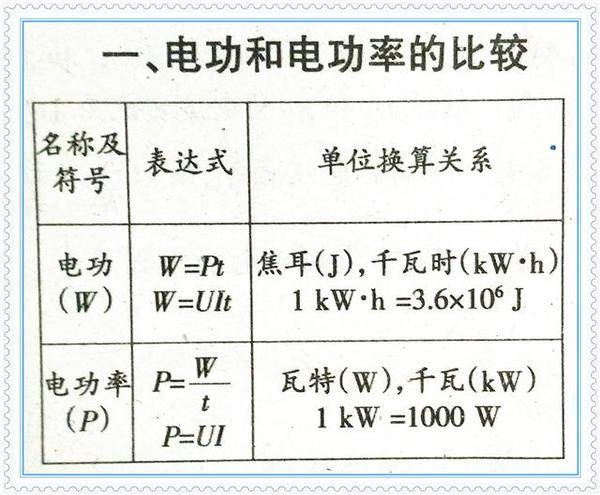 一、电功和电功率的比较
名称及
符号
表达式
单位换算关系
电功
(W)
W=Pt
W=UIt
焦耳(J),千瓦时(kW·h)
1 kW·h =3.6×10⁶ J
电功率
(P)
P=W/t
P=UI
瓦特(W),千瓦(kW)
1 kW =1000 W